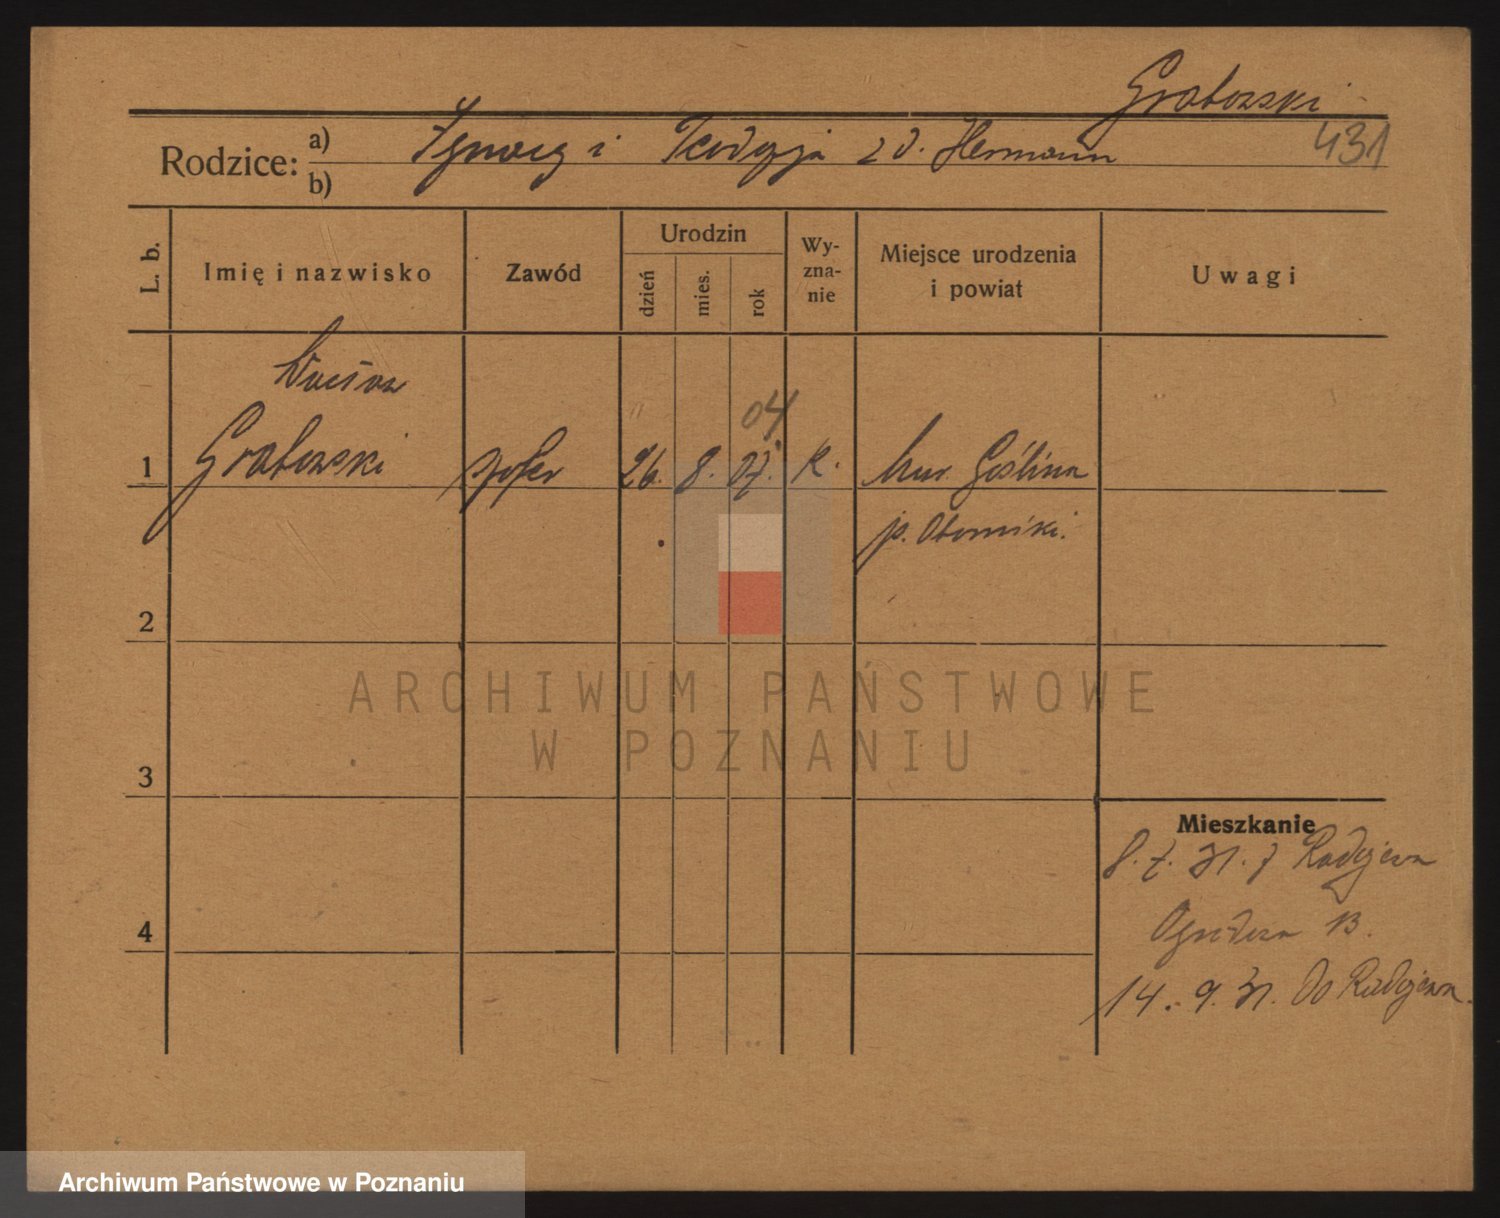 Grabowski
431
Rodzice: a) Ignacy i Teodozja z d. Hermann
b)
L. b.
Imię i nazwisko
Zawód
Urodzin
dzień
mies.
rok
Wy-
zna-
nie
Miejsce urodzenia
i powiat
Uwagi
Wacław
04
1 Grabowski szofer 26. 8. 07. k. Mur. Goślina
p. Oborniki.
2
ARCHIWUM PAŃSTWOWE
W POZNANIU
3
Mieszkanie
8. 7. 31. z Radojewa
13.
4
14. 9. 31. do Radojewa.
Archiwum Państwowe w Poznaniu